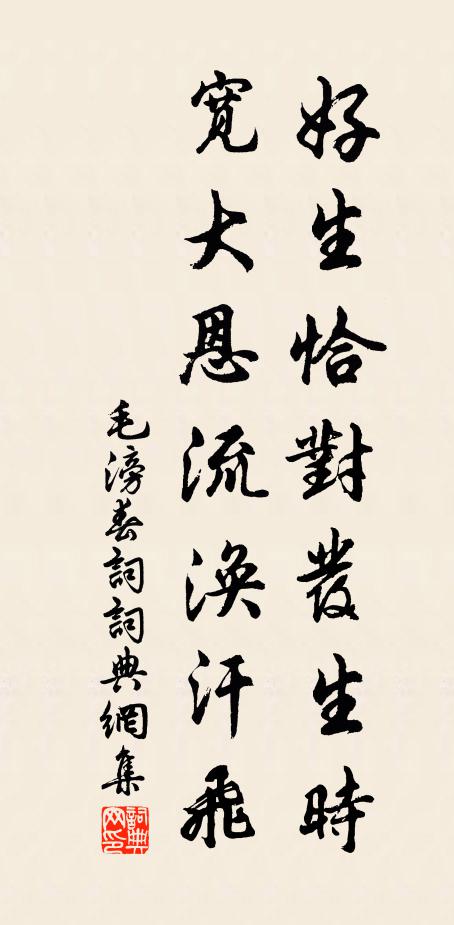 好生恰對發生時
寬大恩流渙汗飛
毛滂春詞詞典網集
詞典網印